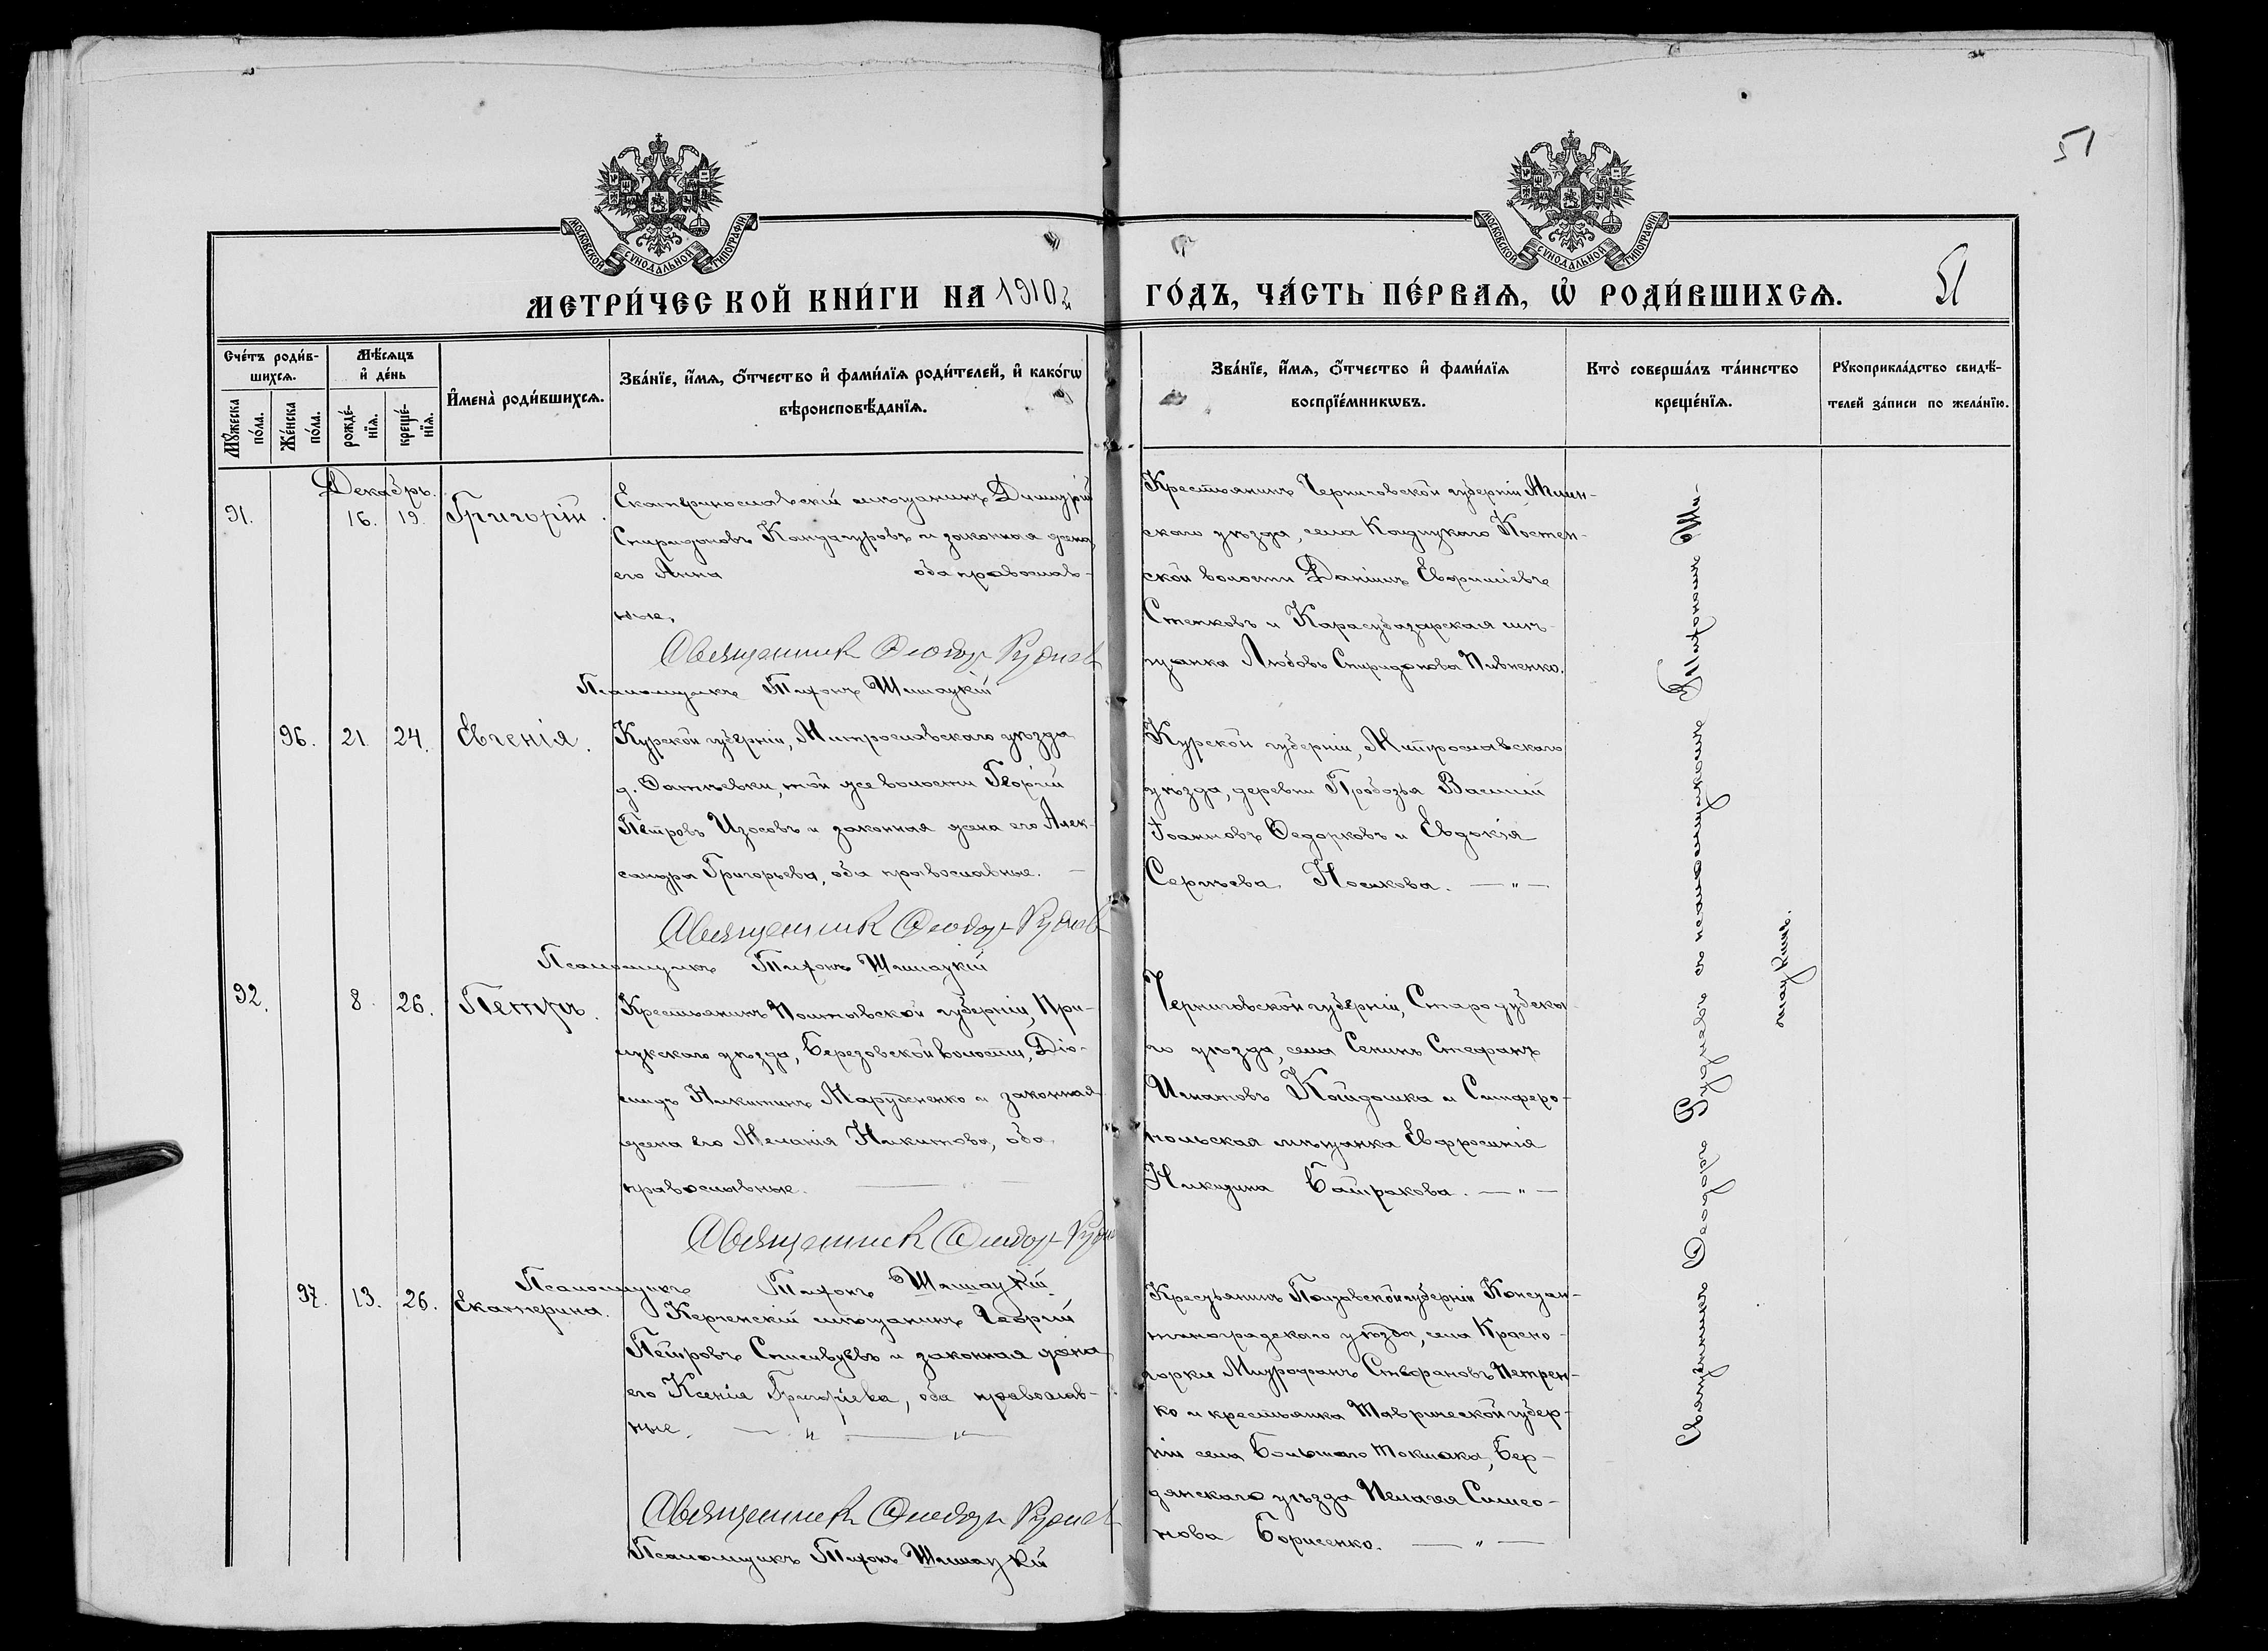 51
МОСКОВСКОЙ СѴНОДАЛЬНОЙ ТИПОГРАФІИ
МОСКОВСКОЙ СѴНОДАЛЬНОЙ ТИПОГРАФІИ
МЕТРИ́ЧЕСКОЙ КНИ́ГИ НА 1910 г. ГО́ДЪ, ЧА́СТЬ ПЕ́РВАѦ, Ѡ҆ РОДИ́ВШИХСѦ. 51
Сче́тъ роди́в-
шихсѧ.
Мꙋ́жеска по́ла.
Же́нска по́ла.
Мѣ́сѧцъ
и҆ де́нь
рожде́-
нїѧ.
креще́-
нїѧ.
И҆мена̀ роди́вшихсѧ.
Зва́нїе, и҆́мѧ, ѻ҆́тчество и҆ фами́лїѧ роди́телей, и҆ како́гѡ
вѣроисповѣ́данїѧ.
Зва́нїе, и҆́мѧ, ѻ҆́тчество и҆ фами́лїѧ
воспрїе́мникѡвъ.
Кто̀ соверша́лъ та́инство
креще́нїѧ.
Рꙋкоприкла́дство свидѣ́-
телей за́писи по жела́нїю.
Декабрь.
91. 16. 19. Григорій.
Екатеринославскій мѣщанинъ Димитрій
Спиридоновъ Кандауровъ и законная жена
его Анна оба православ-
ные.
Священникъ Ѳеодоръ Рудневъ
Псаломщикъ Тихонъ Шишацкій
Крестьянинъ Черниговской губерніи,
скаго уѣзда, села Костен-
ской волости Даніилъ
Степковъ и Карасубазарская мѣ-
щанка Любовь Спиридонова Пивненко.
96. 21. 24. Евгенія.
Курской губерніи, Митрославскаго уѣзда
д. той же волости Георгій
Петровъ Изосовъ и законная жена его Алек-
сандра Григорьева, оба православные. —
Священникъ Ѳеодоръ Рудневъ
Псаломщикъ Тихонъ Шишацкій
Курской губерніи, Митрославскаго
уѣзда, деревни Василій
Іоанновъ Ѳедорковъ и Евдокія
Сергѣева Носикова. — " —
92. 8. 26. Петръ.
Крестьянинъ Полтавской губерніи, При-
лукскаго уѣзда, Березовской волости, Діо-
мидъ Никитинъ Марущенко и законная
жена его Меланія Никитова, оба
православные. —
Священникъ Ѳеодоръ Рудневъ
Псаломщикъ Тихонъ Шишацкій
Черниговской губерніи, Стародубска-
го уѣзда, села Сенинъ Стефанъ
Игнатовъ и Симферо-
польская мѣщанка Евфросинія
Никитина Батракова. — " —
97. 13. 26. Екатерина.
Керченскій мѣщанинъ Георгій
Петровъ и законная жена
его Ксенія Григоріева, оба православ-
ные. — " — " —
Священникъ Ѳеодоръ Рудневъ
Псаломщикъ Тихонъ Шишацкій
Крестьянинъ Полтавской губерніи Констан-
тиноградскаго уѣзда, села Красно-
горки Митрофанъ Стефановъ Петрен-
ко и крестьянка Таврической губер-
ніи села Большаго Токмака, Бер-
дянскаго уѣзда Пелагея Симео-
нова Борисенко. — " —
Священникъ Ѳеодоръ Рудневъ съ псаломщикомъ Тихономъ Ши-
шацкимъ.